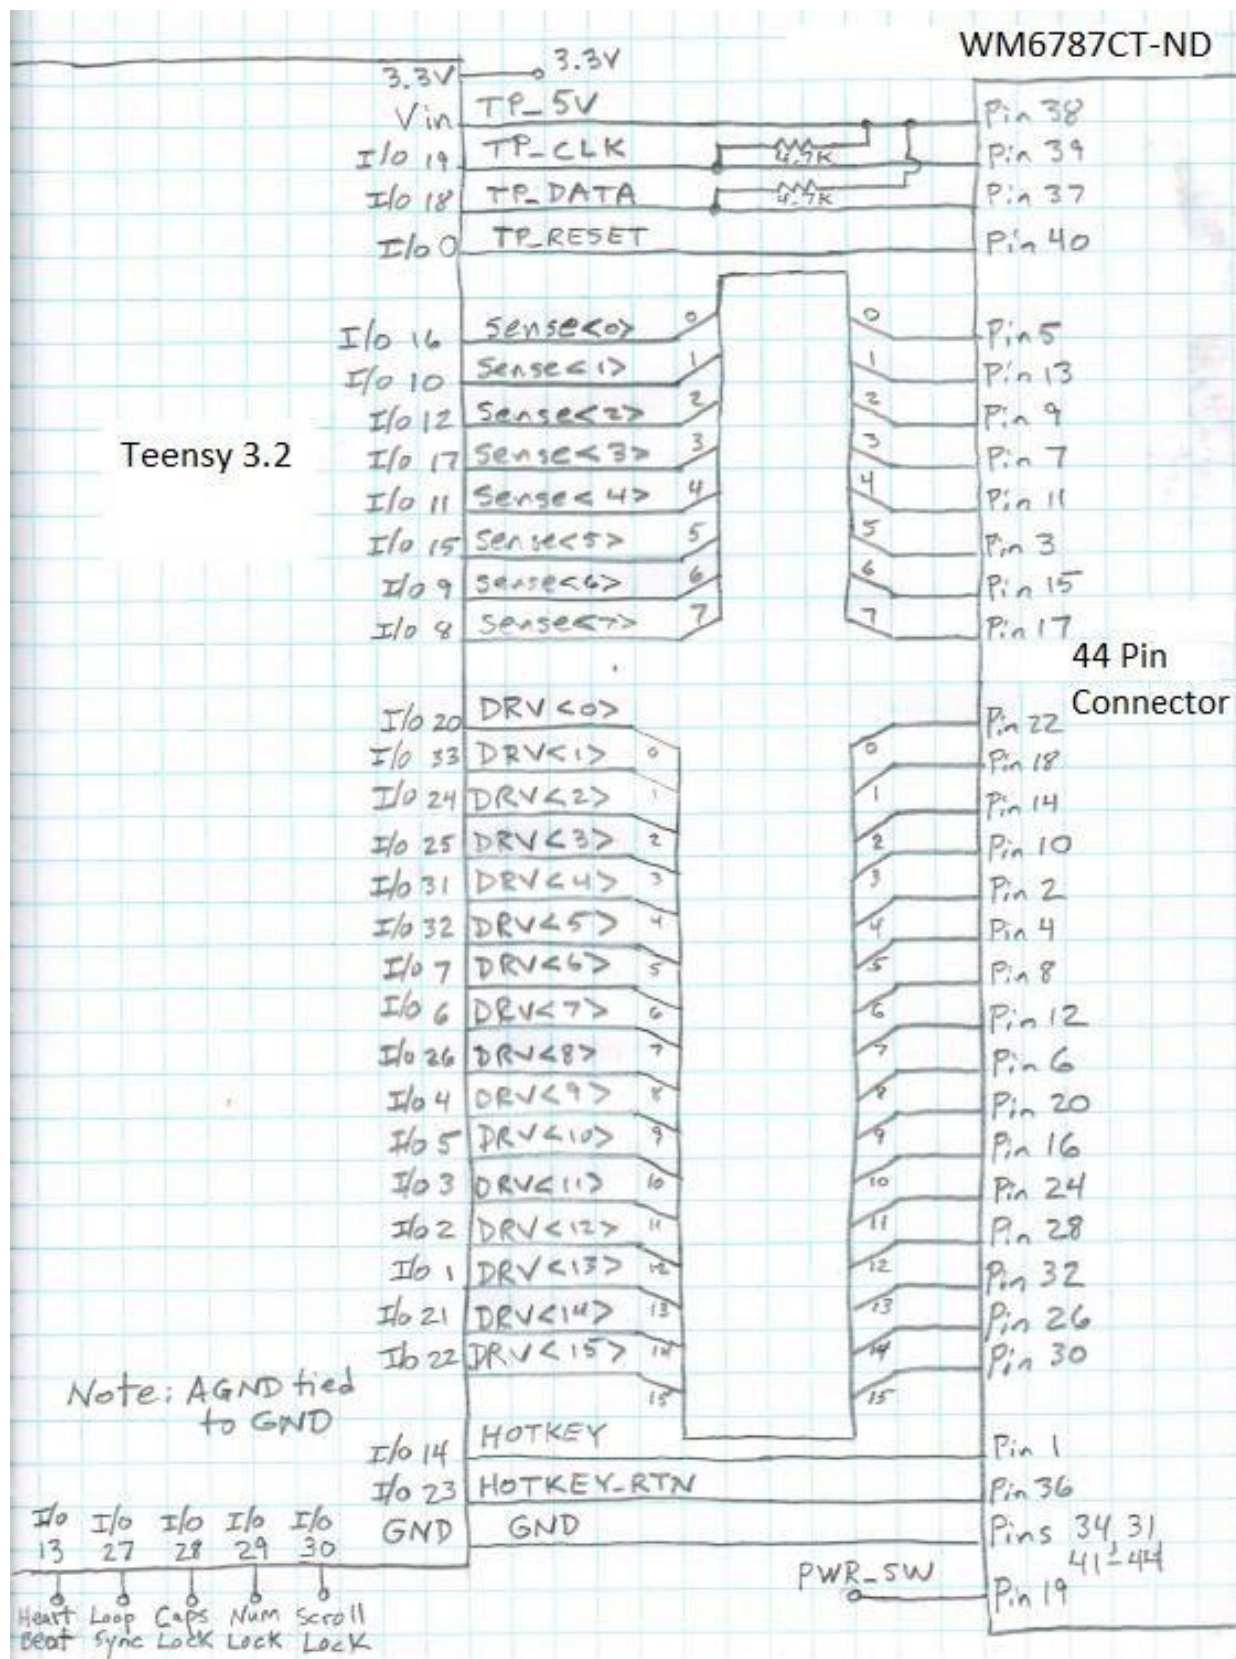 WM6787CT-ND
3.3V 3.3V
Vin TP_5V Pin 38
I/O 19 TP_CLK 4.7K Pin 39
I/O 18 TP_DATA 4.7K Pin 37
I/O 0 TP_RESET Pin 40
I/O 16 Sense<0> 0 0 Pin 5
I/O 10 Sense<1> 1 1 Pin 13
I/O 12 Sense<2> 2 2 Pin 9
Teensy 3.2
I/O 17 Sense<3> 3 3 Pin 7
I/O 11 Sense<4> 4 4 Pin 11
I/O 15 Sense<5> 5 5 Pin 3
I/O 9 Sense<6> 6 6 Pin 15
I/O 8 Sense<7> 7 7 Pin 17
44 Pin
Connector
I/O 20 DRV<0> 0 0 Pin 22
I/O 33 DRV<1> 1 1 Pin 18
I/O 24 DRV<2> 2 2 Pin 14
I/O 25 DRV<3> 3 3 Pin 10
I/O 31 DRV<4> 4 4 Pin 2
I/O 32 DRV<5> 5 5 Pin 4
I/O 7 DRV<6> 6 6 Pin 8
I/O 6 DRV<7> 7 7 Pin 12
I/O 26 DRV<8> 8 8 Pin 6
I/O 4 DRV<9> 9 9 Pin 20
I/O 5 DRV<10> 10 10 Pin 16
I/O 3 DRV<11> 11 11 Pin 24
I/O 2 DRV<12> 12 12 Pin 28
I/O 1 DRV<13> 13 13 Pin 32
I/O 21 DRV<14> 14 14 Pin 26
I/O 22 DRV<15> 15 15 Pin 30
Note: AGND tied
to GND
I/O 14 HOTKEY Pin 1
I/O 23 HOTKEY_RTN Pin 36
GND GND Pins 34, 31
41-44
PWR_SW Pin 19
I/O I/O I/O I/O I/O
13 27 28 29 30
Heart Loop Caps Num Scroll
Beat Sync Lock Lock Lock